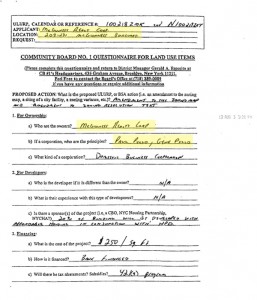 ULURP, CALENDAR OR REFERENCE #: 100218 ZMK
APPLICANT: McGuinness Realty Corp
LOCATION: McGuinness Boulevard
REQUEST:
COMMUNITY BOARD NO. 1 QUESTIONNAIRE FOR LAND USE ITEMS
(Please complete this questionnaire and return to District Manager Gerald A. Esposito at
CB #1's Headquarters, 435 Graham Avenue, Brooklyn, New York 11211.
Feel free to contact the Board's Office at (718) 389-0009
if you have any questions or require additional information
PROPOSED ACTION: What is the proposed ULURP, or BSA action (i.e. an amendment to the zoning
map, a siting of a city facility, a zoning variance, etc.)?
1. For Ownership:
Who are the owners? McGuinness Realty Corp
If a corporation, who are the principals?
What kind of a corporation? Domestic Business Corporation
2. For Developers:
Who is the developer if it is different than the owner? N/A
What is their experience with this type of development? N/A
Is there a sponsor(s) of the project (i.e., a CBO, NYC Housing Partnership,
NYCHA?) 20% of building will be developed with
affordable housing in conjunction with HPD.
3. Financing:
What is the cost of the project? $250 / sq. ft
How is it financed? Bank Financed
Will there be tax abatements? Subsidies? 421a program